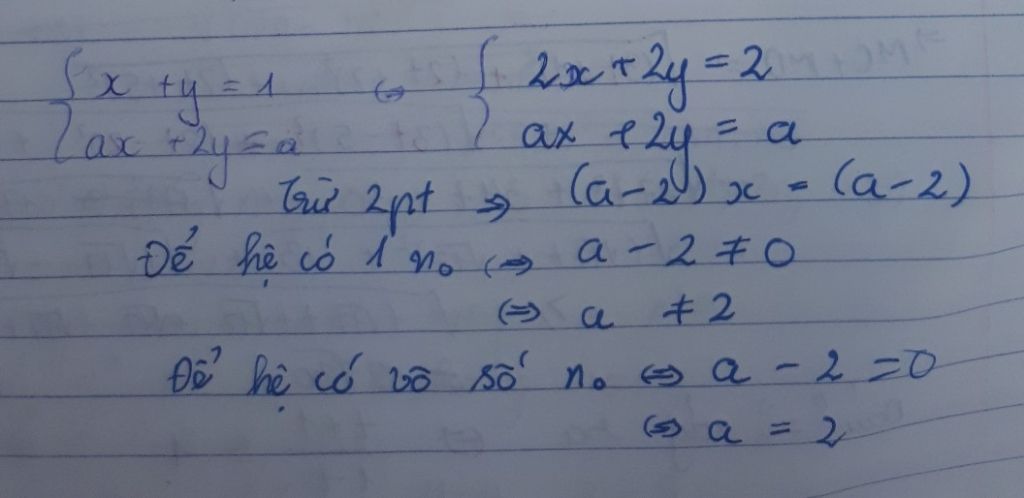 { x + y = 1 ⇔ { 2x + 2y = 2
{ ax + 2y = a { ax + 2y = a
Trừ 2pt ⇒ (a-2) x = (a-2)
Để hệ có 1 no ⇔ a - 2 ≠ 0
⇔ a ≠ 2
Để hệ có vô số no ⇔ a - 2 = 0
⇔ a = 2